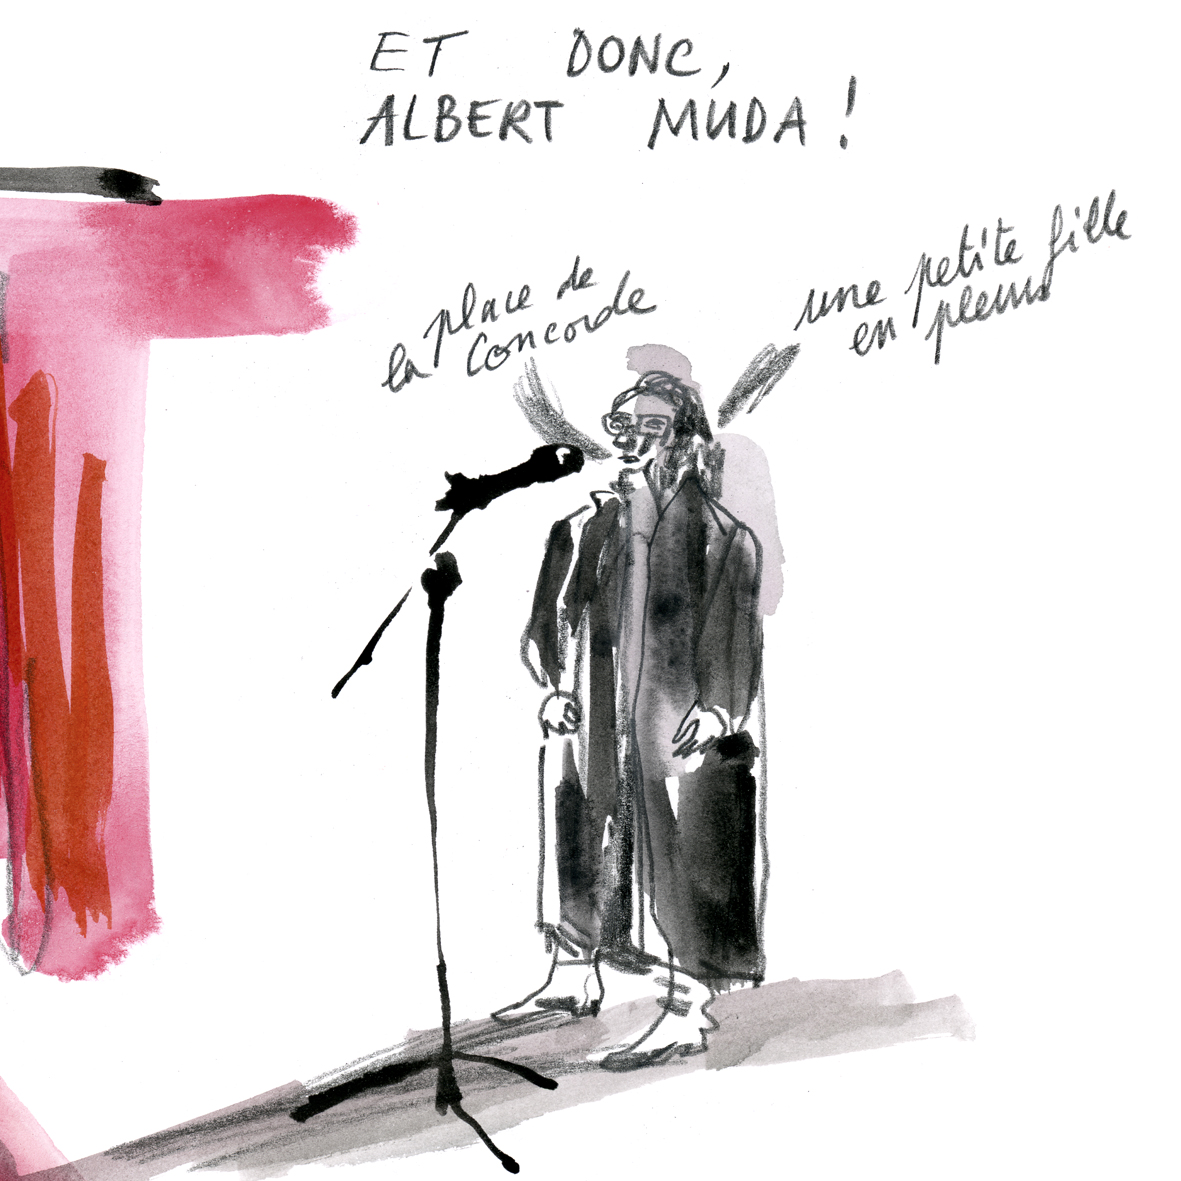 ET DONC,
ALBERT MUDA !
la place de
Concorde
une petite fille
en pleurs